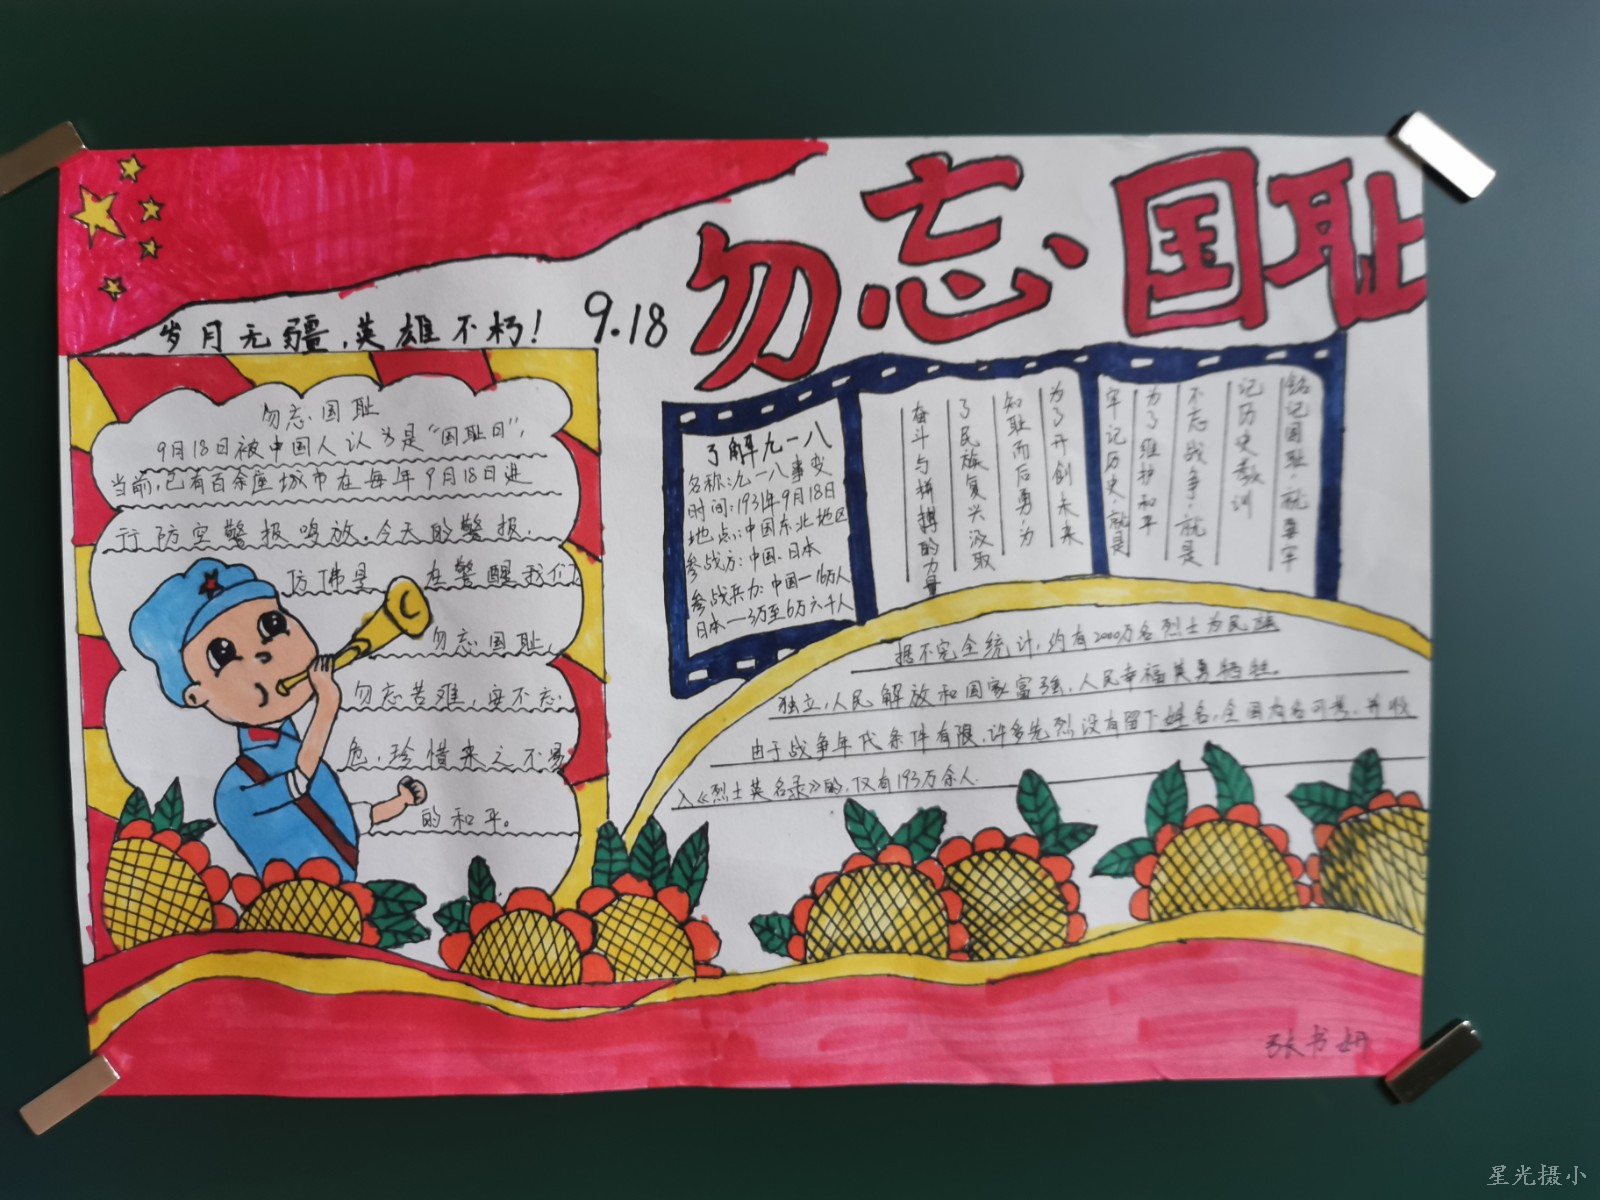 勿忘国耻
岁月无疆，英雄不朽！ 9.18
勿忘国耻
9月18日被中国人认为是“国耻日”，
当前，已有百余座城市在每年9月18日进
行防空警报鸣放。今天的警报，
仿佛是 在警醒我们
勿忘国耻，
勿忘苦难，安不忘
危，珍惜来之不易
的和平。
了解九一八
名称：九一八事变
时间：1931年9月18日
地点：中国东北地区
参战方：中国、日本
参战兵力：中国—16万人
日本—3万至6万六千人
铭记国耻，就要牢
记历史教训
不忘战争，就是
为了维护和平
牢记历史，就是
为了开创未来
知耻而后勇，为
了民族复兴汲取
奋斗与拼搏的力量
据不完全统计，约有2000万名烈士为民族
独立，人民解放和国家富强，人民幸福英勇牺牲。
由于战争年代条件有限，许多先烈没有留下姓名，全国有名可考，并收
入《烈士英名录》的，仅有193万余人.
张书妍
星光摄小